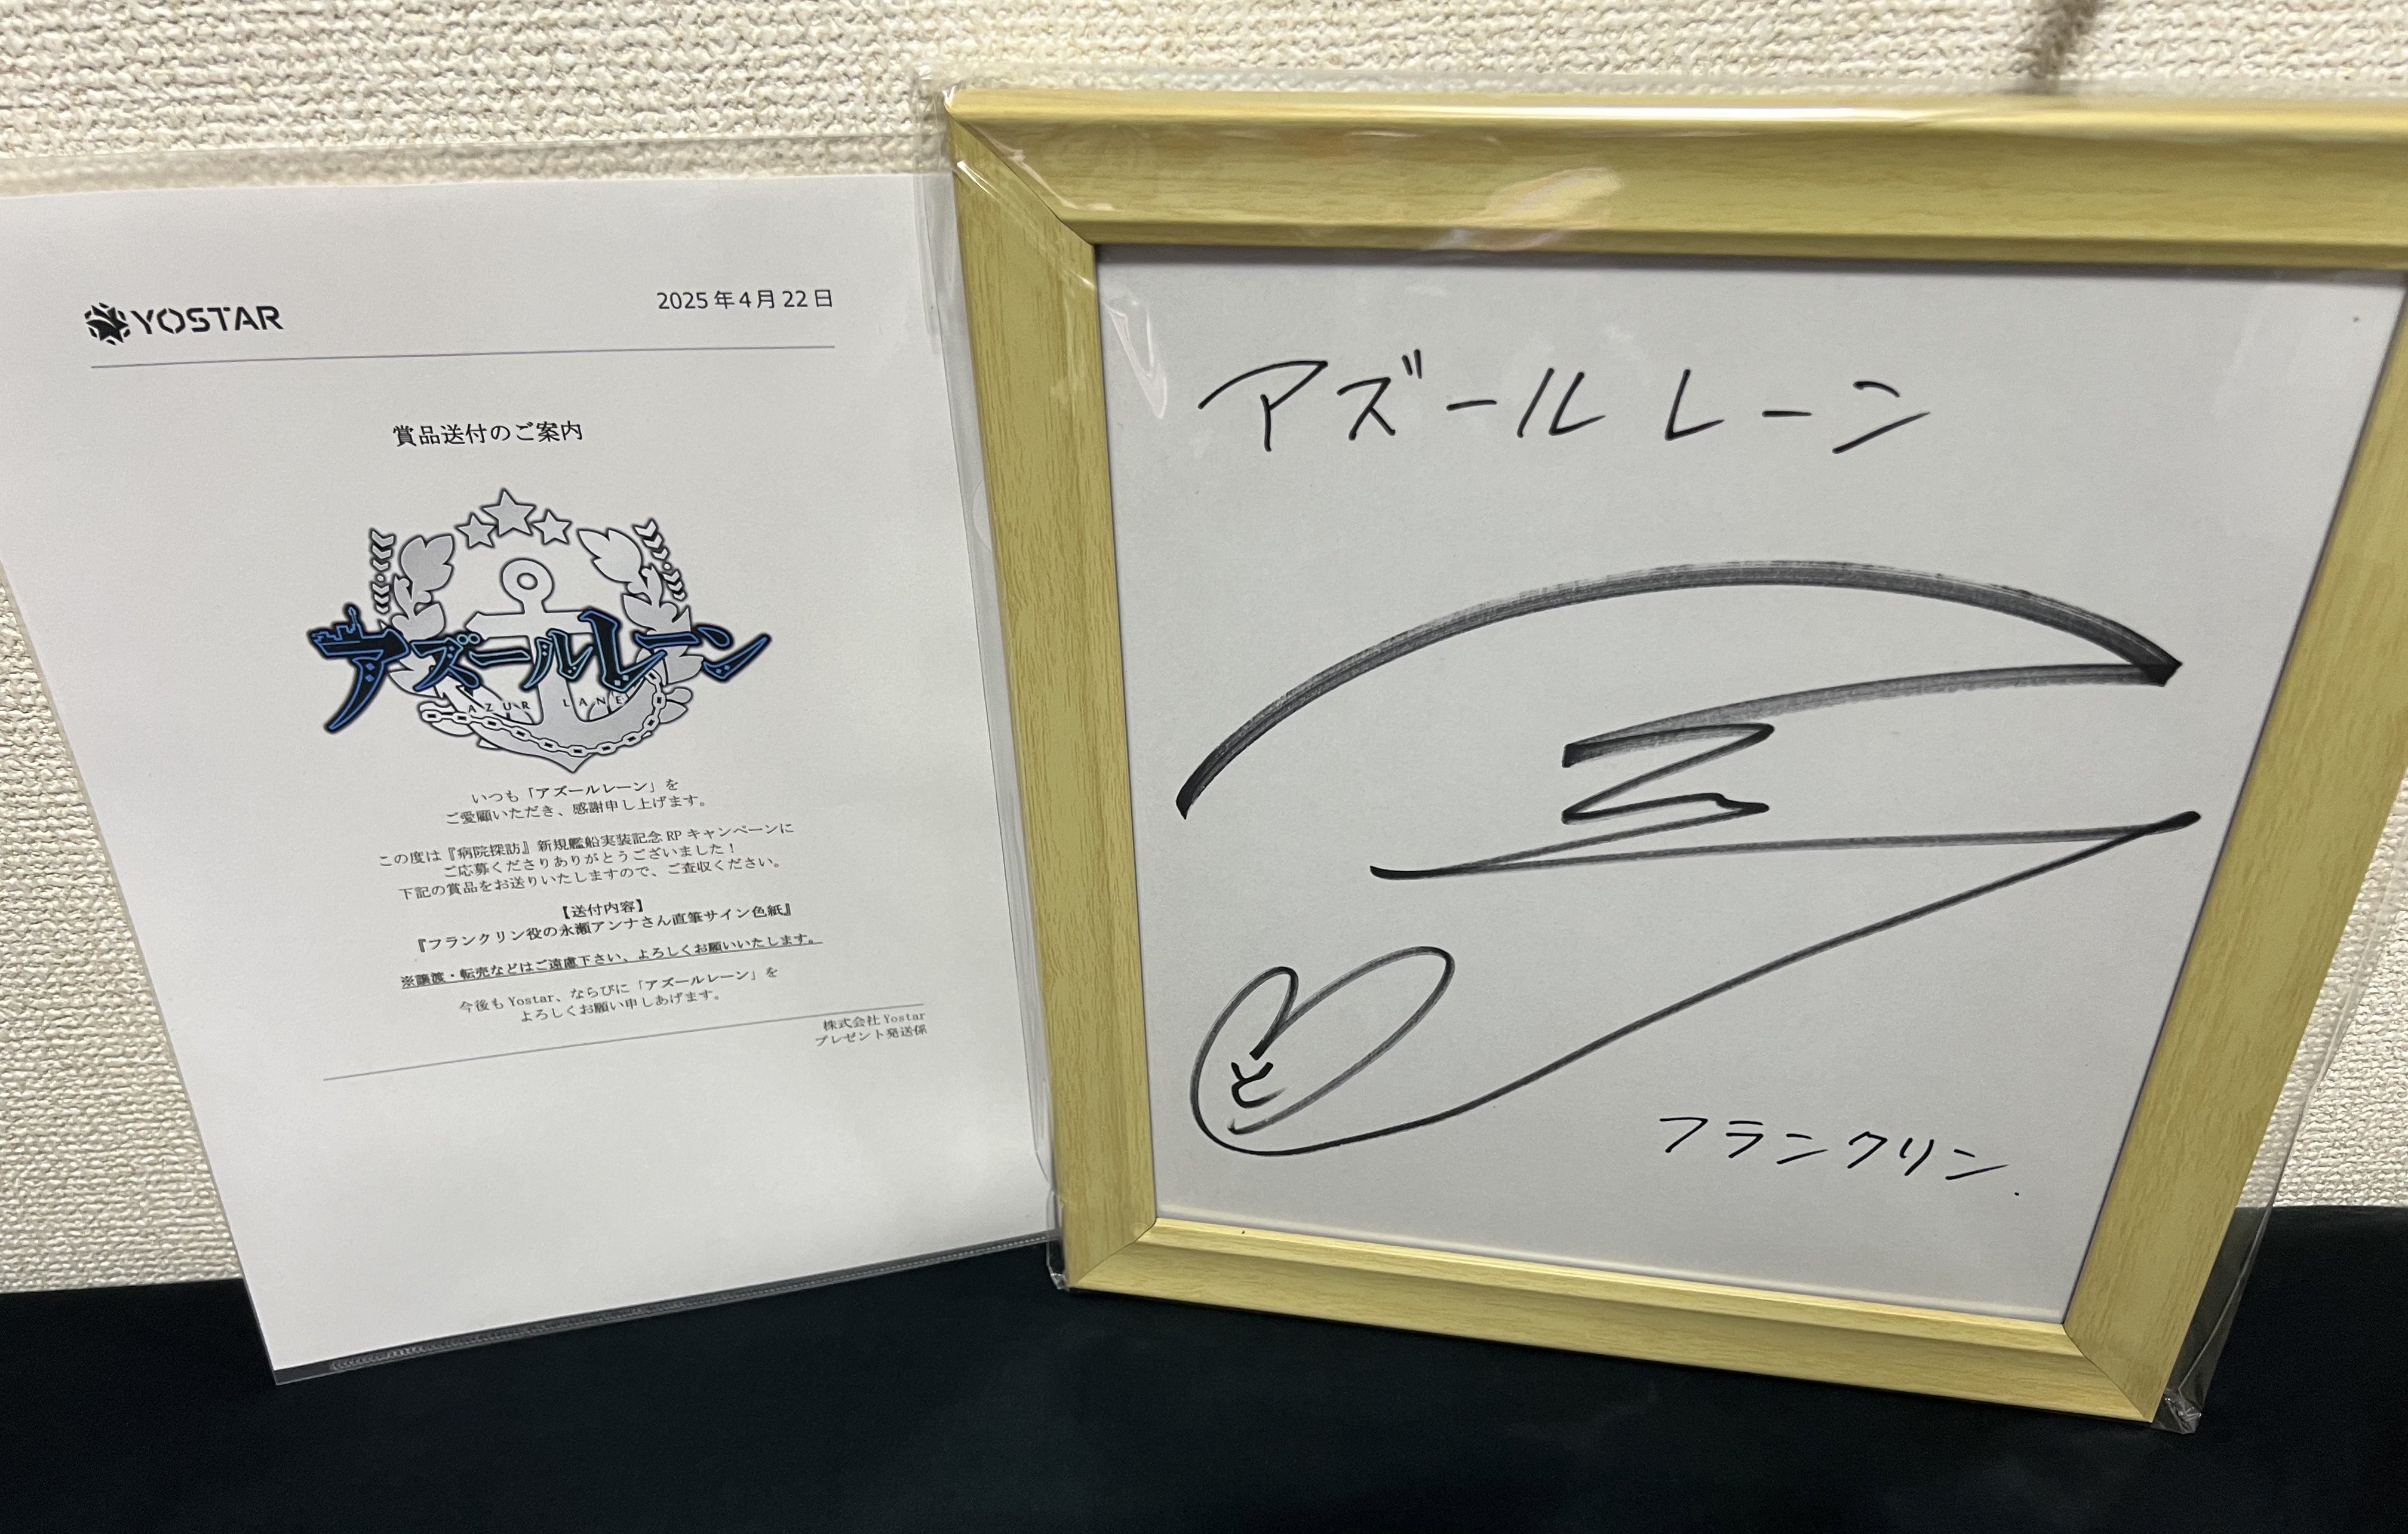 YOSTAR
2025年4月22日
賞品送付のご案内
アズールレーン
AZUR LANE
いつも「アズールレーン」を
ご愛顧いただき、感謝申し上げます。
この度は『病院探訪』新規艦船実装記念 RP キャンペーンに
ご応募くださりありがとうございました！
下記の賞品をお送りいたしますので、ご査収ください。
【送付内容】
『フランクリン役の永瀬アンナさん直筆サイン色紙』
※譲渡・転売などはご遠慮下さい、よろしくお願いいたします。
今後も Yostar、ならびに「アズールレーン」を
よろしくお願い申しあげます。
株式会社 Yostar
プレゼント発送係
アズールレーン
フランクリン.